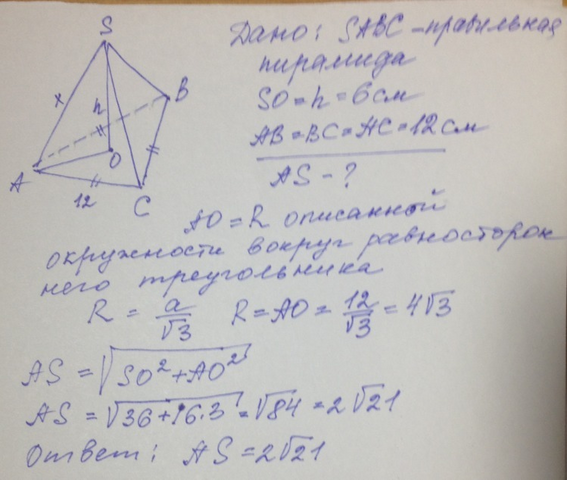 S
Дано: SABC - правильная
пирамида
x
h
B
SO = h = 6 см
AB = BC = AC = 12 см
O
A
12
C
AS - ?
AO = R описанной
окружности вокруг равносторон
него треугольника
R = a/√3 R = AO = 12/√3 = 4√3
AS = √(SO² + AO²)
AS = √(36 + 16·3) = √84 = 2√21
Ответ: AS = 2√21